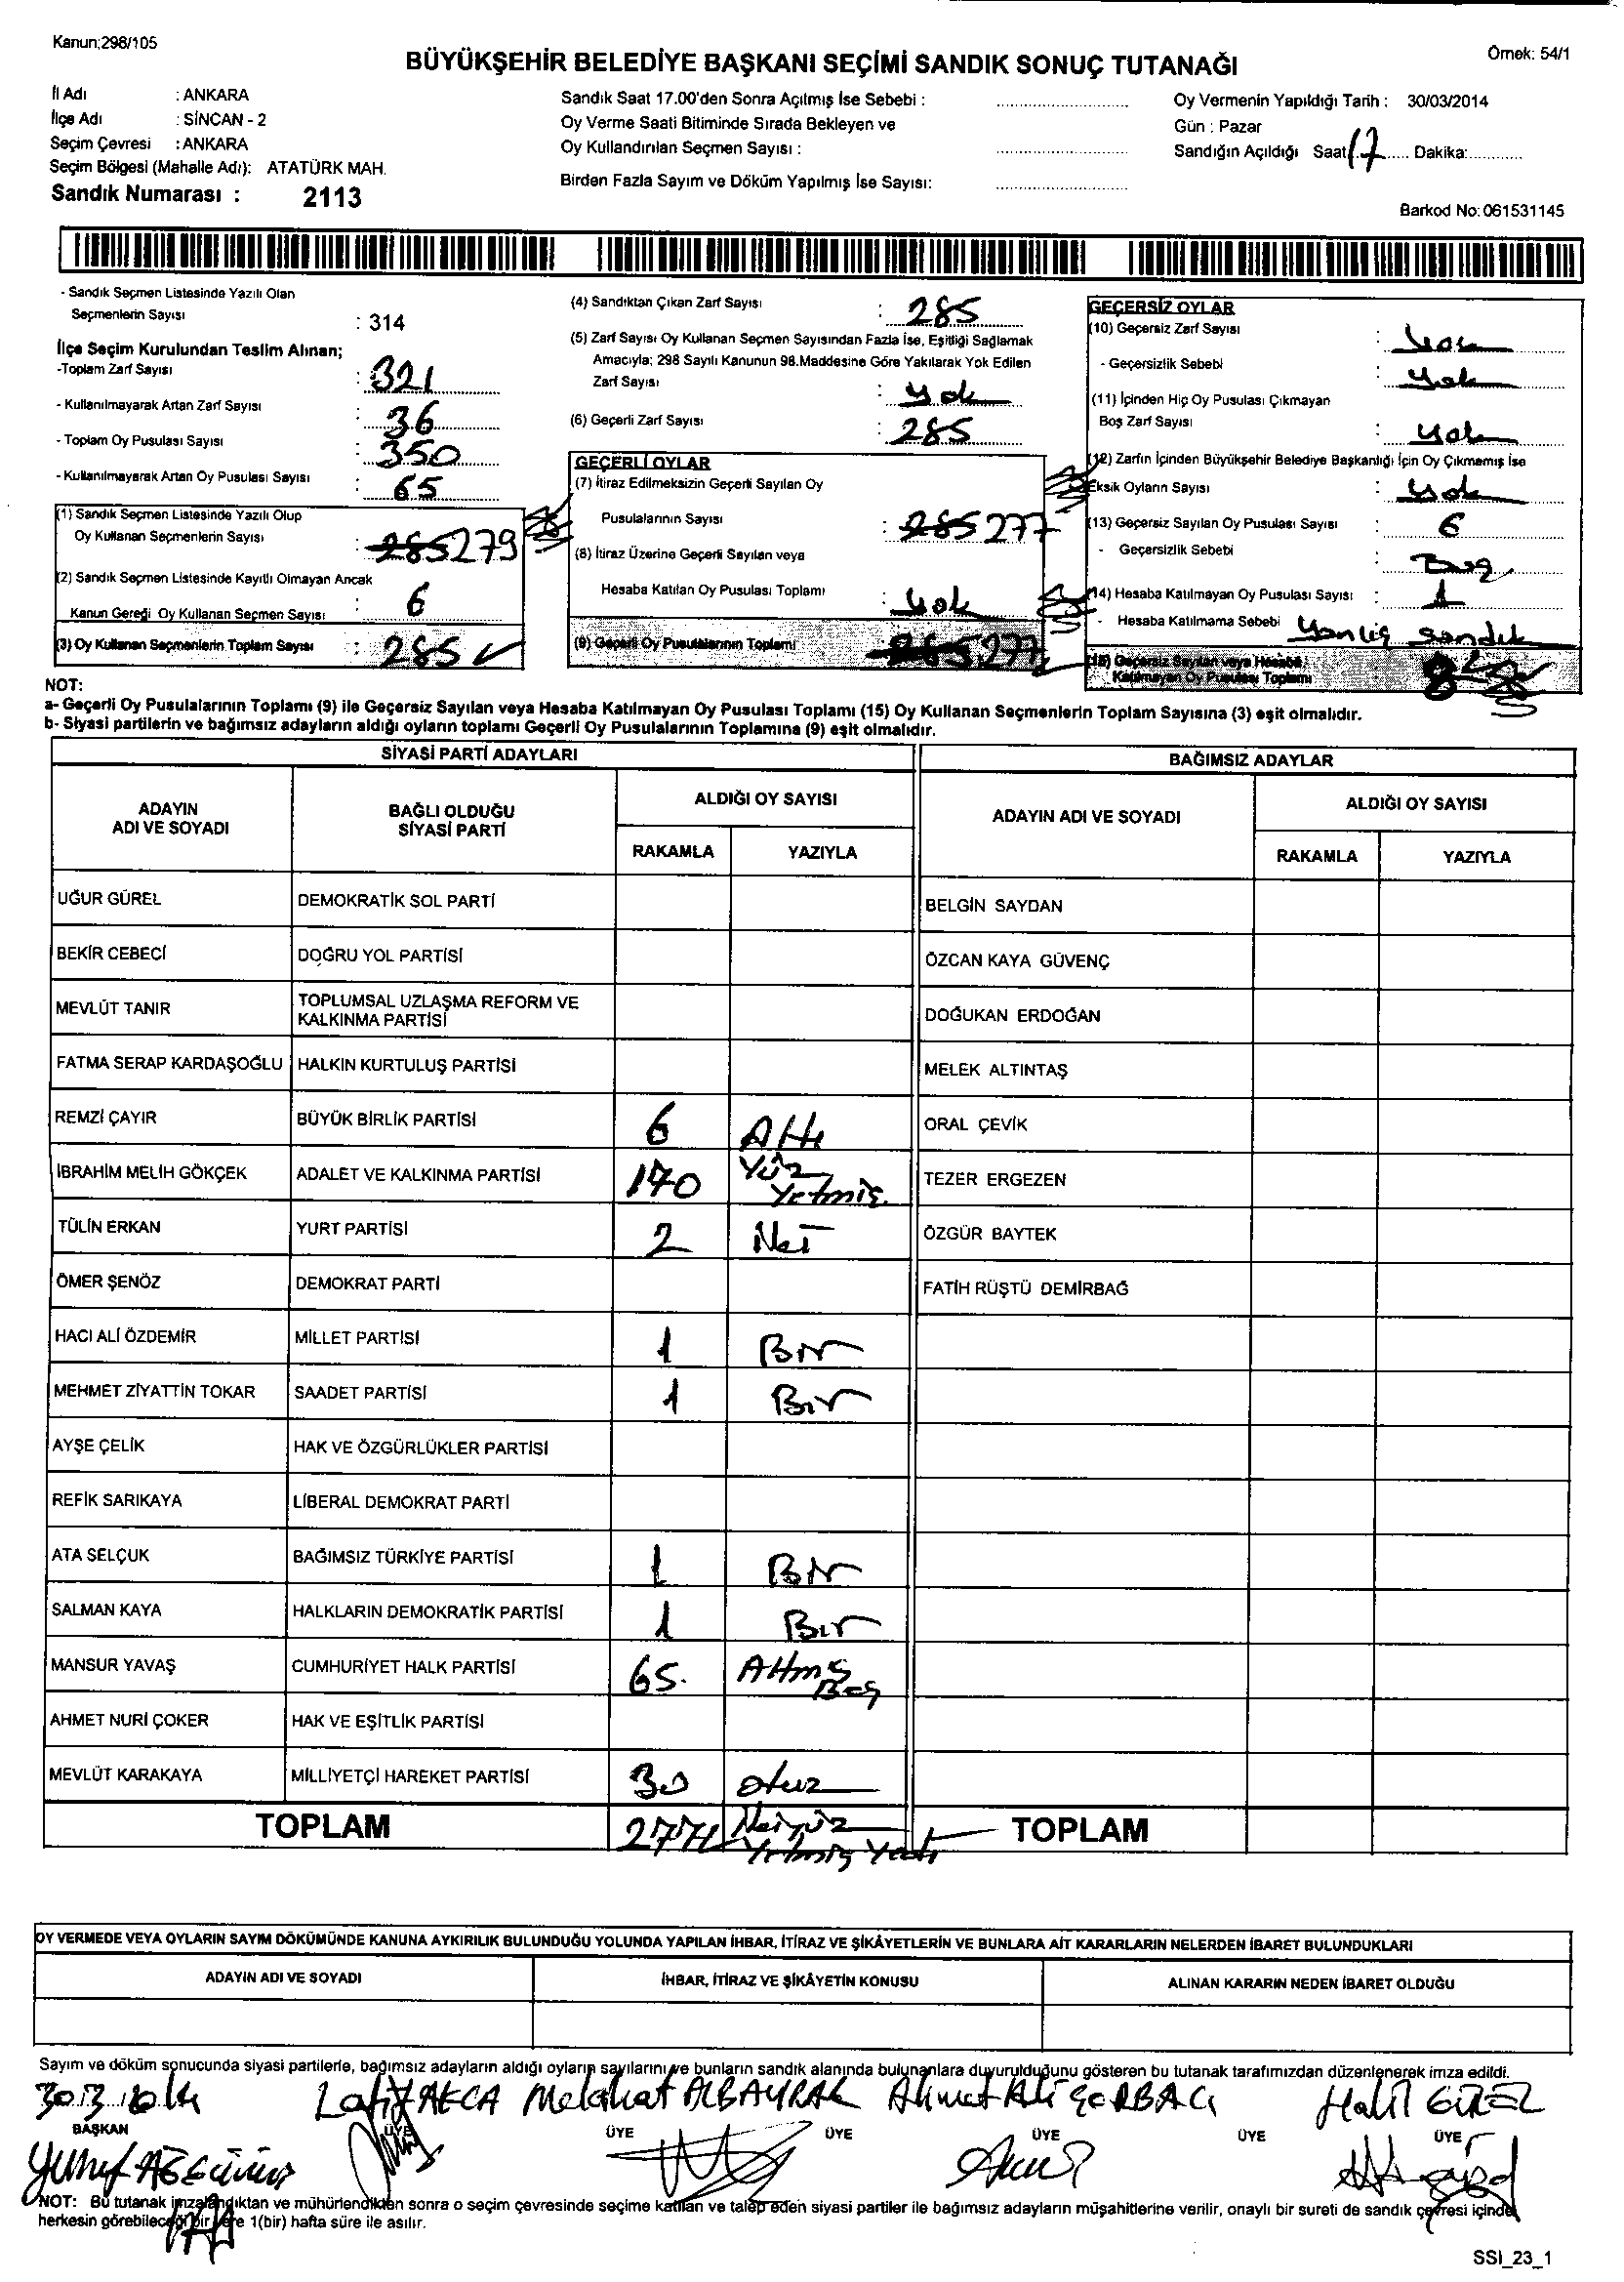 Kanun;298/105
Örnek: 54/1
BÜYÜKŞEHİR BELEDİYE BAŞKANI SEÇİMİ SANDIK SONUÇ TUTANAĞI
İl Adı : ANKARA
İlçe Adı : SİNCAN - 2
Seçim Çevresi : ANKARA
Seçim Bölgesi (Mahalle Adı): ATATÜRK MAH.
Sandık Numarası : 2113
Sandık Saat 17.00'den Sonra Açılmış İse Sebebi :
Oy Verme Saati Bitiminde Sırada Bekleyen ve
Oy Kullandırılan Seçmen Sayısı :
Birden Fazla Sayım ve Döküm Yapılmış İse Sayısı:
Oy Vermenin Yapıldığı Tarih : 30/03/2014
Gün : Pazar
Sandığın Açıldığı Saat 17 Dakika:
Barkod No:061531145
- Sandık Seçmen Listesinde Yazılı Olan
Seçmenlerin Sayısı : 314
İlçe Seçim Kurulundan Teslim Alınan;
-Toplam Zarf Sayısı : 321
- Kullanılmayarak Artan Zarf Sayısı : 36
- Toplam Oy Pusulası Sayısı : 350
- Kullanılmayarak Artan Oy Pusulası Sayısı : 65
(1) Sandık Seçmen Listesinde Yazılı Olup
Oy Kullanan Seçmenlerin Sayısı : 285 279
(2) Sandık Seçmen Listesinde Kayıtlı Olmayan Ancak
Kanun Gereği Oy Kullanan Seçmen Sayısı : 6
(3) Oy Kullanan Seçmenlerin Toplam Sayısı : 285
(4) Sandıktan Çıkan Zarf Sayısı : 285
(5) Zarf Sayısı Oy Kullanan Seçmen Sayısından Fazla İse, Eşitliği Sağlamak
Amacıyla; 298 Sayılı Kanunun 98.Maddesine Göre Yakılarak Yok Edilen
Zarf Sayısı : Yok
(6) Geçerli Zarf Sayısı : 285
GEÇERLİ OYLAR
(7) İtiraz Edilmeksizin Geçerli Sayılan Oy
Pusulalarının Sayısı : 285 277
(8) İtiraz Üzerine Geçerli Sayılan veya
Hesaba Katılan Oy Pusulası Toplamı : Yok
(9) Geçerli Oy Pusulalarının Toplamı : 285 277
GEÇERSİZ OYLAR
(10) Geçersiz Zarf Sayısı : Yok
- Geçersizlik Sebebi : Yok
(11) İçinden Hiç Oy Pusulası Çıkmayan
Boş Zarf Sayısı : Yok
(12) Zarfın İçinden Büyükşehir Belediye Başkanlığı İçin Oy Çıkmamış İse
Eksik Oyların Sayısı : Yok
(13) Geçersiz Sayılan Oy Pusulası Sayısı : 6
- Geçersizlik Sebebi : Boş
(14) Hesaba Katılmayan Oy Pusulası Sayısı : 1
- Hesaba Katılmama Sebebi Yanlış sandık
(15) Geçersiz Sayılan veya Hesaba
Katılmayan Oy Pusulası Toplamı 8
NOT:
a- Geçerli Oy Pusulalarının Toplamı (9) ile Geçersiz Sayılan veya Hesaba Katılmayan Oy Pusulası Toplamı (15) Oy Kullanan Seçmenlerin Toplam Sayısına (3) eşit olmalıdır.
b- Siyasi partilerin ve bağımsız adayların aldığı oyların toplamı Geçerli Oy Pusulalarının Toplamına (9) eşit olmalıdır.
SİYASİ PARTİ ADAYLARI
BAĞIMSIZ ADAYLAR
ADAYIN ADI VE SOYADI BAĞLI OLDUĞU SİYASİ PARTİ ALDIĞI OY SAYISI ADAYIN ADI VE SOYADI ALDIĞI OY SAYISI
RAKAMLA YAZIYLA RAKAMLA YAZIYLA
UĞUR GÜREL DEMOKRATİK SOL PARTİ BELGİN SAYDAN
BEKİR CEBECİ DOĞRU YOL PARTİSİ ÖZCAN KAYA GÜVENÇ
MEVLÜT TANIR TOPLUMSAL UZLAŞMA REFORM VE KALKINMA PARTİSİ DOĞUKAN ERDOĞAN
FATMA SERAP KARDAŞOĞLU HALKIN KURTULUŞ PARTİSİ MELEK ALTINTAŞ
REMZİ ÇAYIR BÜYÜK BİRLİK PARTİSİ 6 Altı ORAL ÇEVİK
İBRAHİM MELİH GÖKÇEK ADALET VE KALKINMA PARTİSİ 170 Yüz Yetmiş TEZER ERGEZEN
TÜLİN ERKAN YURT PARTİSİ 2 İki ÖZGÜR BAYTEK
ÖMER ŞENÖZ DEMOKRAT PARTİ FATİH RÜŞTÜ DEMİRBAĞ
HACI ALİ ÖZDEMİR MİLLET PARTİSİ 1 Bir
MEHMET ZİYATTİN TOKAR SAADET PARTİSİ 1 Bir
AYŞE ÇELİK HAK VE ÖZGÜRLÜKLER PARTİSİ
REFİK SARIKAYA LİBERAL DEMOKRAT PARTİ
ATA SELÇUK BAĞIMSIZ TÜRKİYE PARTİSİ 1 Bir
SALMAN KAYA HALKLARIN DEMOKRATİK PARTİSİ 1 Bir
MANSUR YAVAŞ CUMHURİYET HALK PARTİSİ 65 Altmış Beş
AHMET NURİ ÇOKER HAK VE EŞİTLİK PARTİSİ
MEVLÜT KARAKAYA MİLLİYETÇİ HAREKET PARTİSİ 30 otuz
TOPLAM 277 İkiyüz Yetmiş Yedi TOPLAM
OY VERMEDE VEYA OYLARIN SAYIM DÖKÜMÜNDE KANUNA AYKIRILIK BULUNDUĞU YOLUNDA YAPILAN İHBAR, İTİRAZ VE ŞİKÂYETLERİN VE BUNLARA AİT KARARLARIN NELERDEN İBARET BULUNDUKLARI
ADAYIN ADI VE SOYADI İHBAR, İTİRAZ VE ŞİKÂYETİN KONUSU ALINAN KARARIN NEDEN İBARET OLDUĞU
Sayım ve döküm sonucunda siyasi partilerle, bağımsız adayların aldığı oyların sayılarını ve bunların sandık alanında bulunanlara duyurulduğunu gösteren bu tutanak tarafımızdan düzenlenerek imza edildi.
Melahat ALBAYRAK Ahmet Ali ÇORBACI Halil
BAŞKAN ÜYE ÜYE ÜYE ÜYE ÜYE ÜYE
Yusuf
NOT: Bu tutanak imzalandıktan ve mühürlendikten sonra o seçim çevresinde seçime katılan ve talep eden siyasi partiler ile bağımsız adayların müşahitlerine verilir, onaylı bir sureti de sandık çevresi içinde
herkesin görebileceği bir yere 1(bir) hafta süre ile asılır.
SSI_23_1